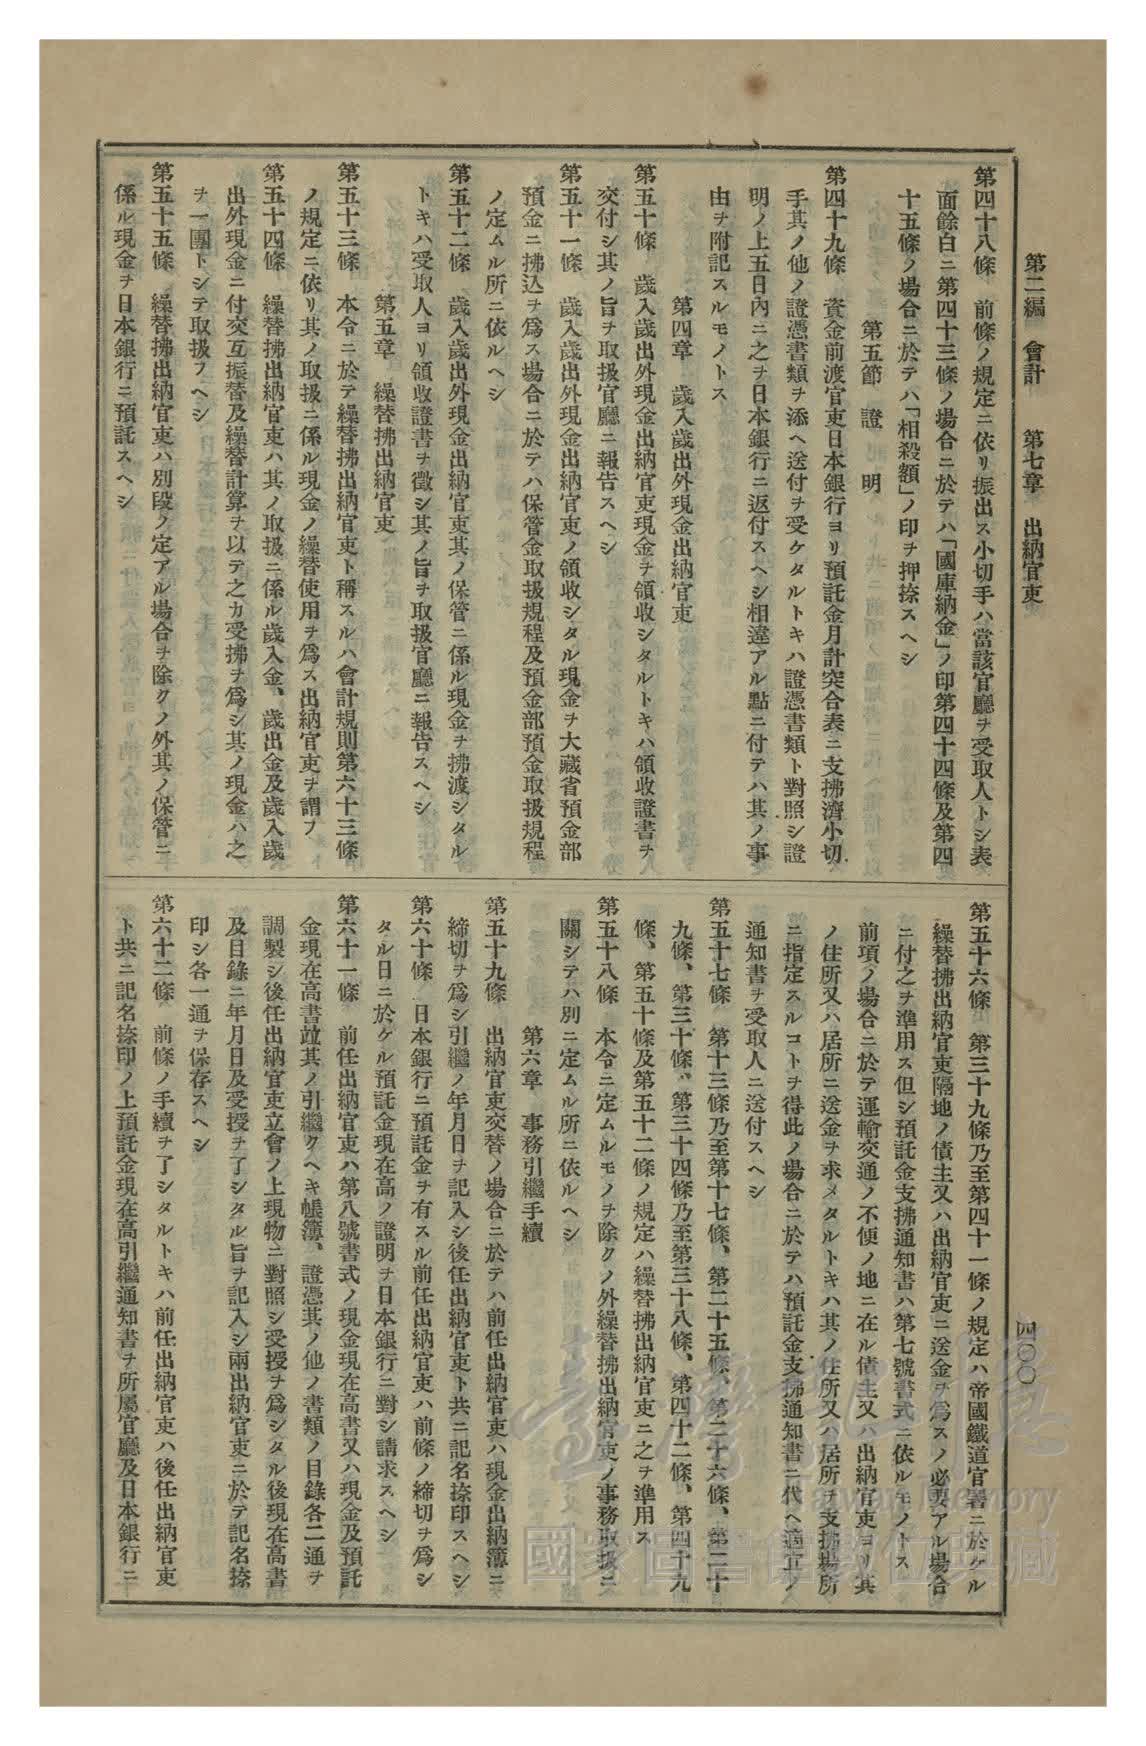 第二編 會計 第七章 出納官吏
四〇〇
第四十八條 前條ノ規定ニ依リ振出ス小切手ハ當該官廳ヲ受取人トシ表
面餘白ニ第四十三條ノ場合ニ於テハ「國庫納金」ノ印第四十四條及第四
十五條ノ場合ニ於テハ「相殺額」ノ印ヲ押捺スヘシ
第五節 證明
第四十九條 資金前渡官吏日本銀行ヨリ預託金月計突合表ニ支拂濟小切
手其ノ他ノ證憑書類ヲ添ヘ送付ヲ受ケタルトキハ證憑書類ト對照シ證
明ノ上五日內ニ之ヲ日本銀行ニ返付スヘシ相違アル點ニ付テハ其ノ事
由ヲ附記スルモノトス
第四章 歲入歲出外現金出納官吏
第五十條 歲入歲出外現金出納官吏現金ヲ領收シタルトキハ領收證書ヲ
交付シ其ノ旨ヲ取扱官廳ニ報告スヘシ
第五十一條 歲入歲出外現金出納官吏ノ領收シタル現金ヲ大藏省預金部
預金ニ拂込ヲ爲ス場合ニ於テハ保管金取扱規程及預金部預金取扱規程
ノ定ムル所ニ依ルヘシ
第五十二條 歲入歲出外現金出納官吏其ノ保管ニ係ル現金ヲ拂渡シタル
トキハ受取人ヨリ領收證書ヲ徵シ其ノ旨ヲ取扱官廳ニ報告スヘシ
第五章 繰替拂出納官吏
第五十三條 本令ニ於テ繰替拂出納官吏ト稱スルハ會計規則第六十三條
ノ規定ニ依リ其ノ取扱ニ係ル現金ノ繰替使用ヲ爲ス出納官吏ヲ謂フ
第五十四條 繰替拂出納官吏ハ其ノ取扱ニ係ル歲入金、歲出金及歲入歲
出外現金ニ付交互振替及繰替計算ヲ以テ之カ受拂ヲ爲シ其ノ現金ハ之
ヲ一團トシテ取扱フヘシ
第五十五條 繰替拂出納官吏ハ別段ノ定アル場合ヲ除クノ外其ノ保管ニ
係ル現金ヲ日本銀行ニ預託スヘシ
第五十六條 第三十九條乃至第四十一條ノ規定ハ帝國鐵道官署ニ於ケル
繰替拂出納官吏隔地ノ債主又ハ出納官吏ニ送金ヲ爲スノ必要アル場合
ニ付之ヲ準用ス但シ預託金支拂通知書ハ第七號書式ニ依ルモノトス
前項ノ場合ニ於テ運輸交通ノ不便ノ地ニ在ル債主又ハ出納官吏ヨリ其
ノ住所又ハ居所ニ送金ヲ求メタルトキハ其ノ住所又ハ居所ヲ支拂場所
ニ指定スルコトヲ得此ノ場合ニ於テハ預託金支拂通知書ニ代ヘ適宜ノ
通知書ヲ受取人ニ送付スヘシ
第五十七條 第十三條乃至第十七條、第二十五條、第二十六條、第二十
九條、第三十條、第三十四條乃至第三十八條、第四十二條、第四十九
條、第五十條及第五十二條ノ規定ハ繰替拂出納官吏ニ之ヲ準用ス
第五十八條 本令ニ定ムルモノヲ除クノ外繰替拂出納官吏ノ事務取扱ニ
關シテハ別ニ定ムル所ニ依ルヘシ
第六章 事務引繼手續
第五十九條 出納官吏交替ノ場合ニ於テハ前任出納官吏ハ現金出納簿ニ
締切ヲ爲シ引繼ノ年月日ヲ記入シ後任出納官吏ト共ニ記名捺印スヘシ
第六十條 日本銀行ニ預託金ヲ有スル前任出納官吏ハ前條ノ締切ヲ爲シ
タル日ニ於ケル預託金現在高ノ證明ヲ日本銀行ニ對シ請求スヘシ
第六十一條 前任出納官吏ハ第八號書式ノ現金現在高書又ハ現金及預託
金現在高書竝其ノ引繼クヘキ帳簿、證憑其ノ他ノ書類ノ目錄各二通ヲ
調製シ後任出納官吏立會ノ上現物ニ對照シ受授ヲ爲シタル後現在高書
及目錄ニ年月日及受授ヲ了シタル旨ヲ記入シ兩出納官吏ニ於テ記名捺
印シ各一通ヲ保存スヘシ
第六十二條 前條ノ手續ヲ了シタルトキハ前任出納官吏ハ後任出納官吏
ト共ニ記名捺印ノ上預託金現在高引繼通知書ヲ所屬官廳及日本銀行ニ
臺灣記憶
Taiwan Memory
國家圖書館數位典藏